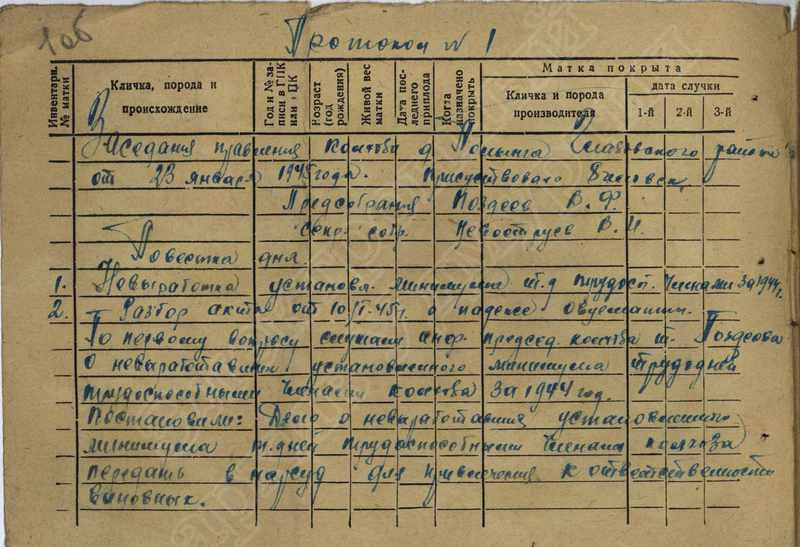 1об
Протокол № 1
Инвентарн. № матки
Кличка, порода и происхождение
Год и № записи в ГПК или ЦК
Возраст (год рождения)
Живой вес матки
Дата последнего приплода
Когда назначено покрыть
Матка покрыта
Кличка и порода производителя
дата случки
1-й 2-й 3-й
Заседания правления колхоза д
района
от 23 января 1945 года. Присуствовало человек.
Пред собрания Поздеев В. Ф.
секр. собр. В. И.
Повестка дня.
1. Невыработка установл. минимума т.д трудосп. членами за 1944 г.
2. Разбор акта от 10/I-45 г. о падеже
По первому вопросу слушали инф. председ. колхоза т. Поздеева
о невыработавших установленного минимума трудодней
трудоспособными членами колхоза за 1944 год.
Постановили: Дело о невыработавших установленного
минимума т.дней трудоспособными членами колхоза
передать в нарсуд для привлечения к ответственности
виновных.